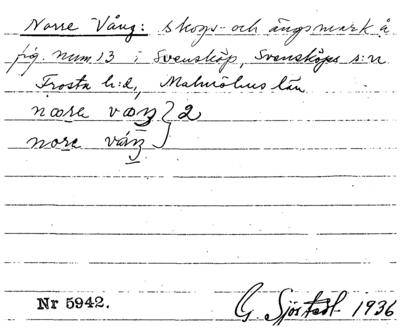 Norre Vång: skogs- och ängsmark å
fig. num 13 i Svensköp, Svensköps s:n
Frosta h:d, Malmöhus län
nore
} 2
nore
Nr 5942.
G. Sjöstedt 1936